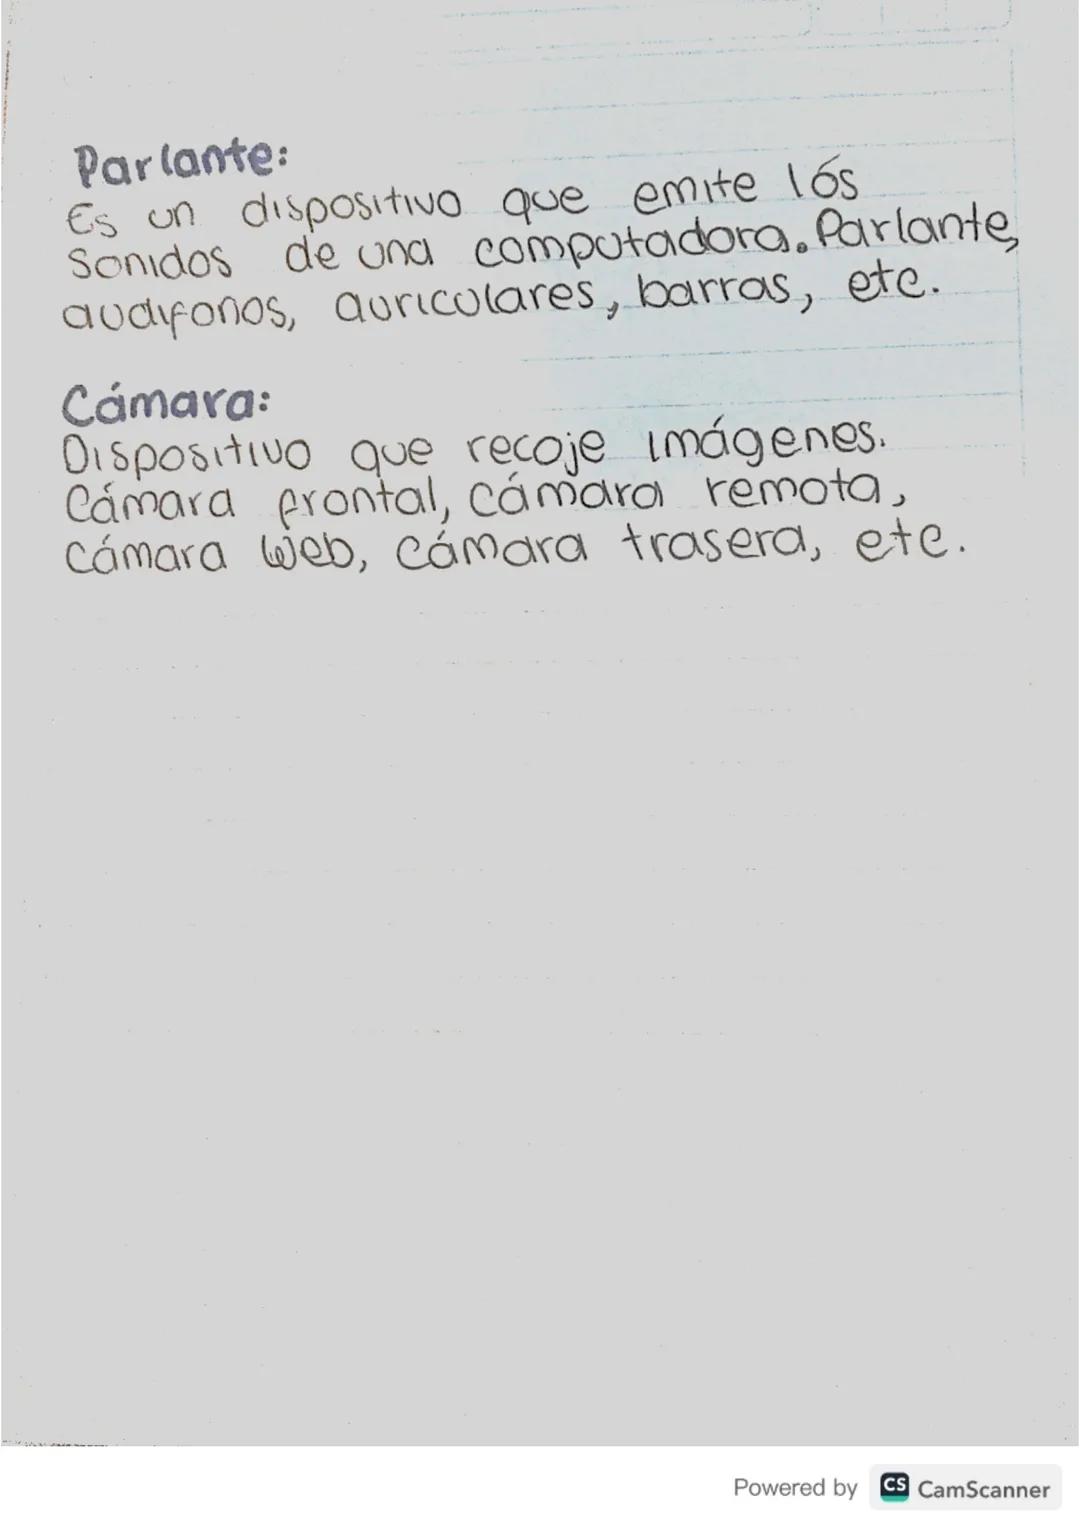 Parlante:
Es un dispositivo que emite lós
Sonidos de una computadora. Parlante,
audifonos, auriculares, barras, etc.
Cámara:
Dispositivo que recoje imágenes.
Cámara frontal, cámara remota,
cámara web, cámara trasera, etc.
Powered by CS CamScanner